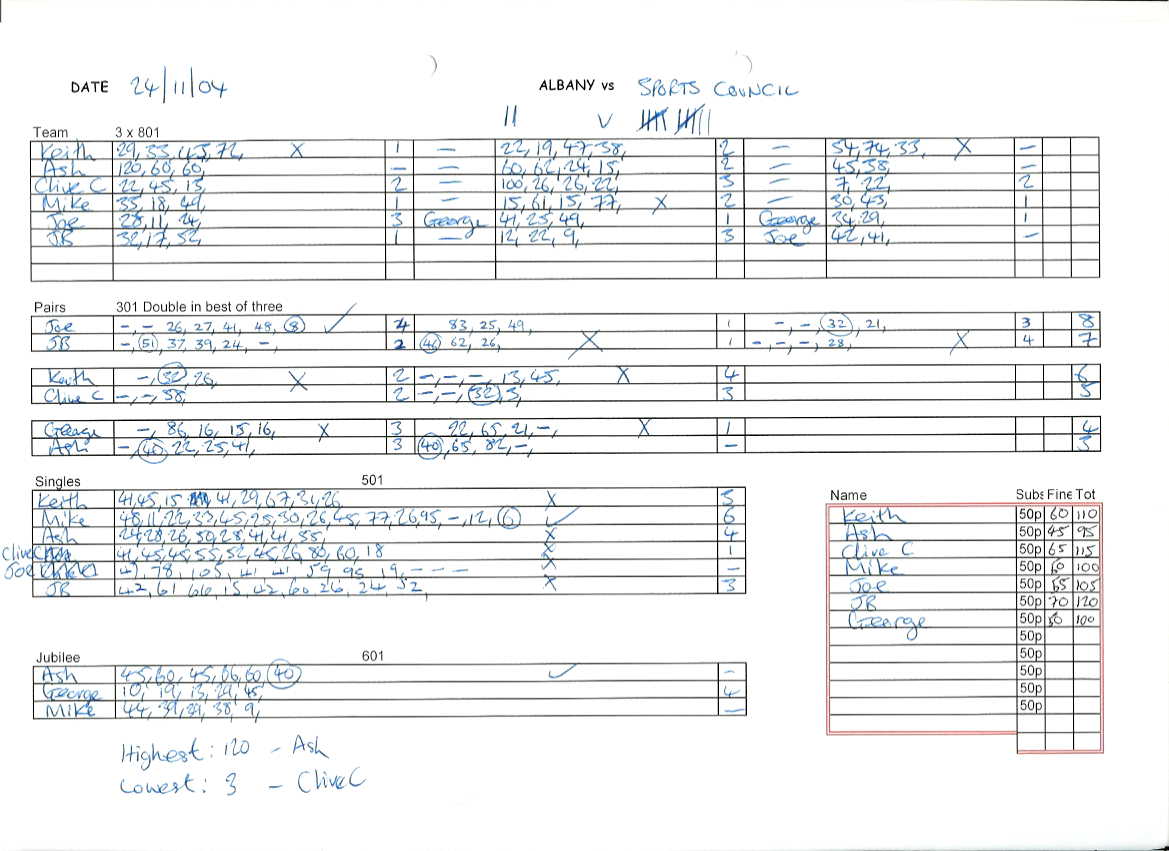 DATE 24/11/04 ALBANY vs SPORTS COUNCIL
|| V
Team 3 x 801
Keith 29, 33, 43, 72, X 1 — 22, 19, 47, 38, 2 — 54, 74, 33, X —
Ash 120, 60, 60, — — 60, 62, 24, 15, 2 — 45, 38, —
Clive C 22, 45, 13, 2 — 100, 26, 26, 22, 3 — 7, 22, 2
Mike 35, 18, 49, 1 — 15, 61, 15, 77, X 2 — 30, 43, 1
Joe 28, 11, 24, 3 George 41, 25, 49, 1 George 34, 29, 1
JB 32, 17, 52, 1 — 12, 22, 9, 3 Joe 42, 41, —
Pairs 301 Double in best of three
Joe -, - 26, 27, 41, 48, 8 ✓ 4 83, 25, 49, 1 -, -, 32, 21, 3 8
JB -, 51, 37, 39, 24, -, 2 46 62, 26, X 1 -, -, -, 28, X 4 7
Keith -, 32, 26, X 2 -, -, -, 13, 45, X 4 6
Clive C -, -, 58, 2 -, -, 32, 3, 3 5
George -, 86, 16, 15, 16, X 3 22, 65, 21, -, X 1 4
Ash -, 40, 22, 25, 41, 3 40, 65, 82, -, — 3
Singles 501
Keith 41, 45, 15 41, 29, 67, 31, 26 X 5
Mike 48, 11, 22, 33, 45, 25, 30, 26, 45, 77, 26, 95, -, 12, 6 ✓ 6
Ash 24, 28, 26, 59, 28, 41, 41, 55, X 4
Clive C 41, 45, 45, 55, 52, 45, 26, 80, 60, 18 X 1
Joe 47, 78, 105, 41 41 59 95 19, - - - X —
JB 42, 61 66 15 42 60 26, 24 52, X 3
Name Subs Fine Tot
Keith 50p 60 110
Ash 50p 45 95
Clive C 50p 65 115
Mike 50p 50 100
Joe 50p 55 105
JB 50p 70 120
George 50p 50 100
50p
50p
50p
50p
50p
Jubilee 601
Ash 45, 60, 45, 66, 60 40 ✓ —
George 10, 19, 13, 29, 45, 4
Mike 44, 39, 29, 38, 9, —
Highest: 120 - Ash
Lowest: 3 - Clive C